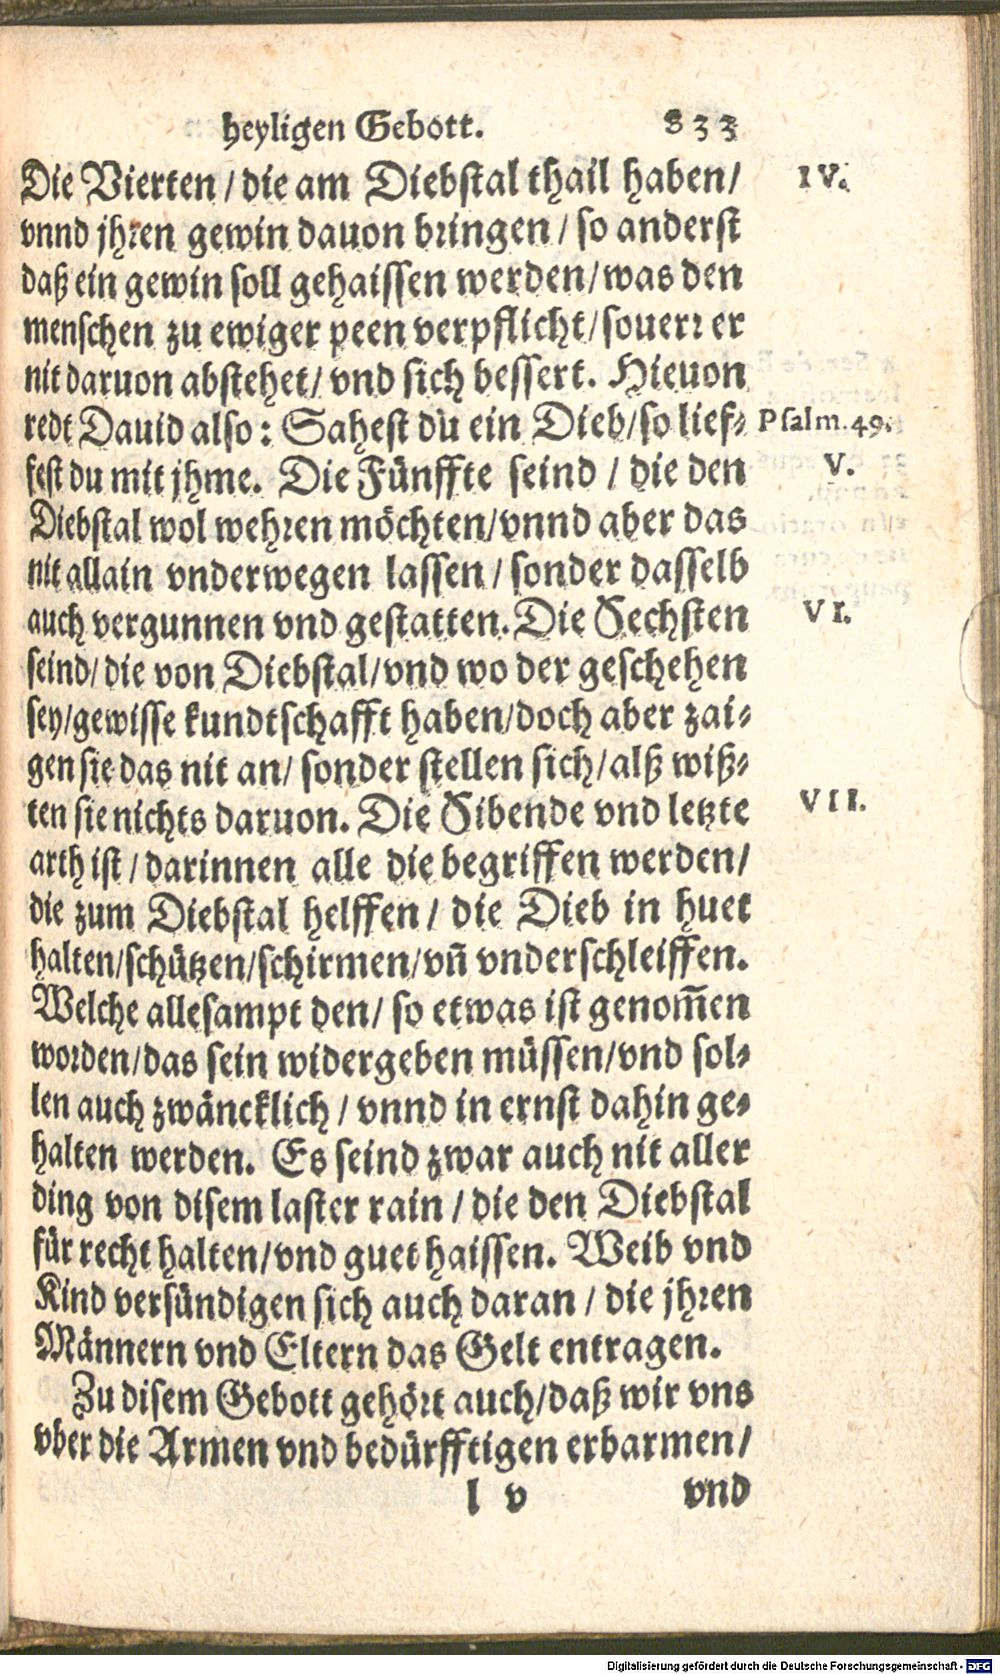 heyligen Gebott. 833
Die Vierten / die am Diebstal thail haben / IV.
vnnd jhren gewin dauon bringen / so anderst
daß ein gewin soll gehaissen werden / was den
menschen zu ewiger peen verpflicht / souerr er
nit daruon abstehet / vnd sich bessert. Hieuon
redt Dauid also : Sahest du ein Dieb / so lief⸗ Psalm. 49.
fest du mit jhme. Die Fünffte seind / die den V.
Diebstal wol wehren möchten / vnnd aber das
nit allain vnderwegen lassen / sonder dasselb
auch vergunnen vnd gestatten. Die Sechsten VI.
seind / die von Diebstal / vnd wo der geschehen
sey / gewisse kundtschafft haben / doch aber zai⸗
gen sie das nit an / sonder stellen sich / alß wiß⸗
ten sie nichts daruon. Die Sibende vnd letzte VII.
arth ist / darinnen alle die begriffen werden /
die zum Diebstal helffen / die Dieb in huet
halten / schützen / schirmen / vñ vnderschleiffen.
Welche allesampt den / so etwas ist genom̃en
worden / das sein widergeben müssen / vnd sol⸗
len auch zwäncklich / vnnd in ernst dahin ge⸗
halten werden. Es seind zwar auch nit aller
ding von disem laster rain / die den Diebstal
für recht halten / vnd guet haissen. Weib vnd
Kind versündigen sich auch daran / die jhren
Männern vnd Eltern das Gelt entragen.
Zu disem Gebott gehört auch / daß wir vns
vber die Armen vnd bedürfftigen erbarmen /
l v vnd
Digitalisierung gefördert durch die Deutsche Forschungsgemeinschaft - DFG